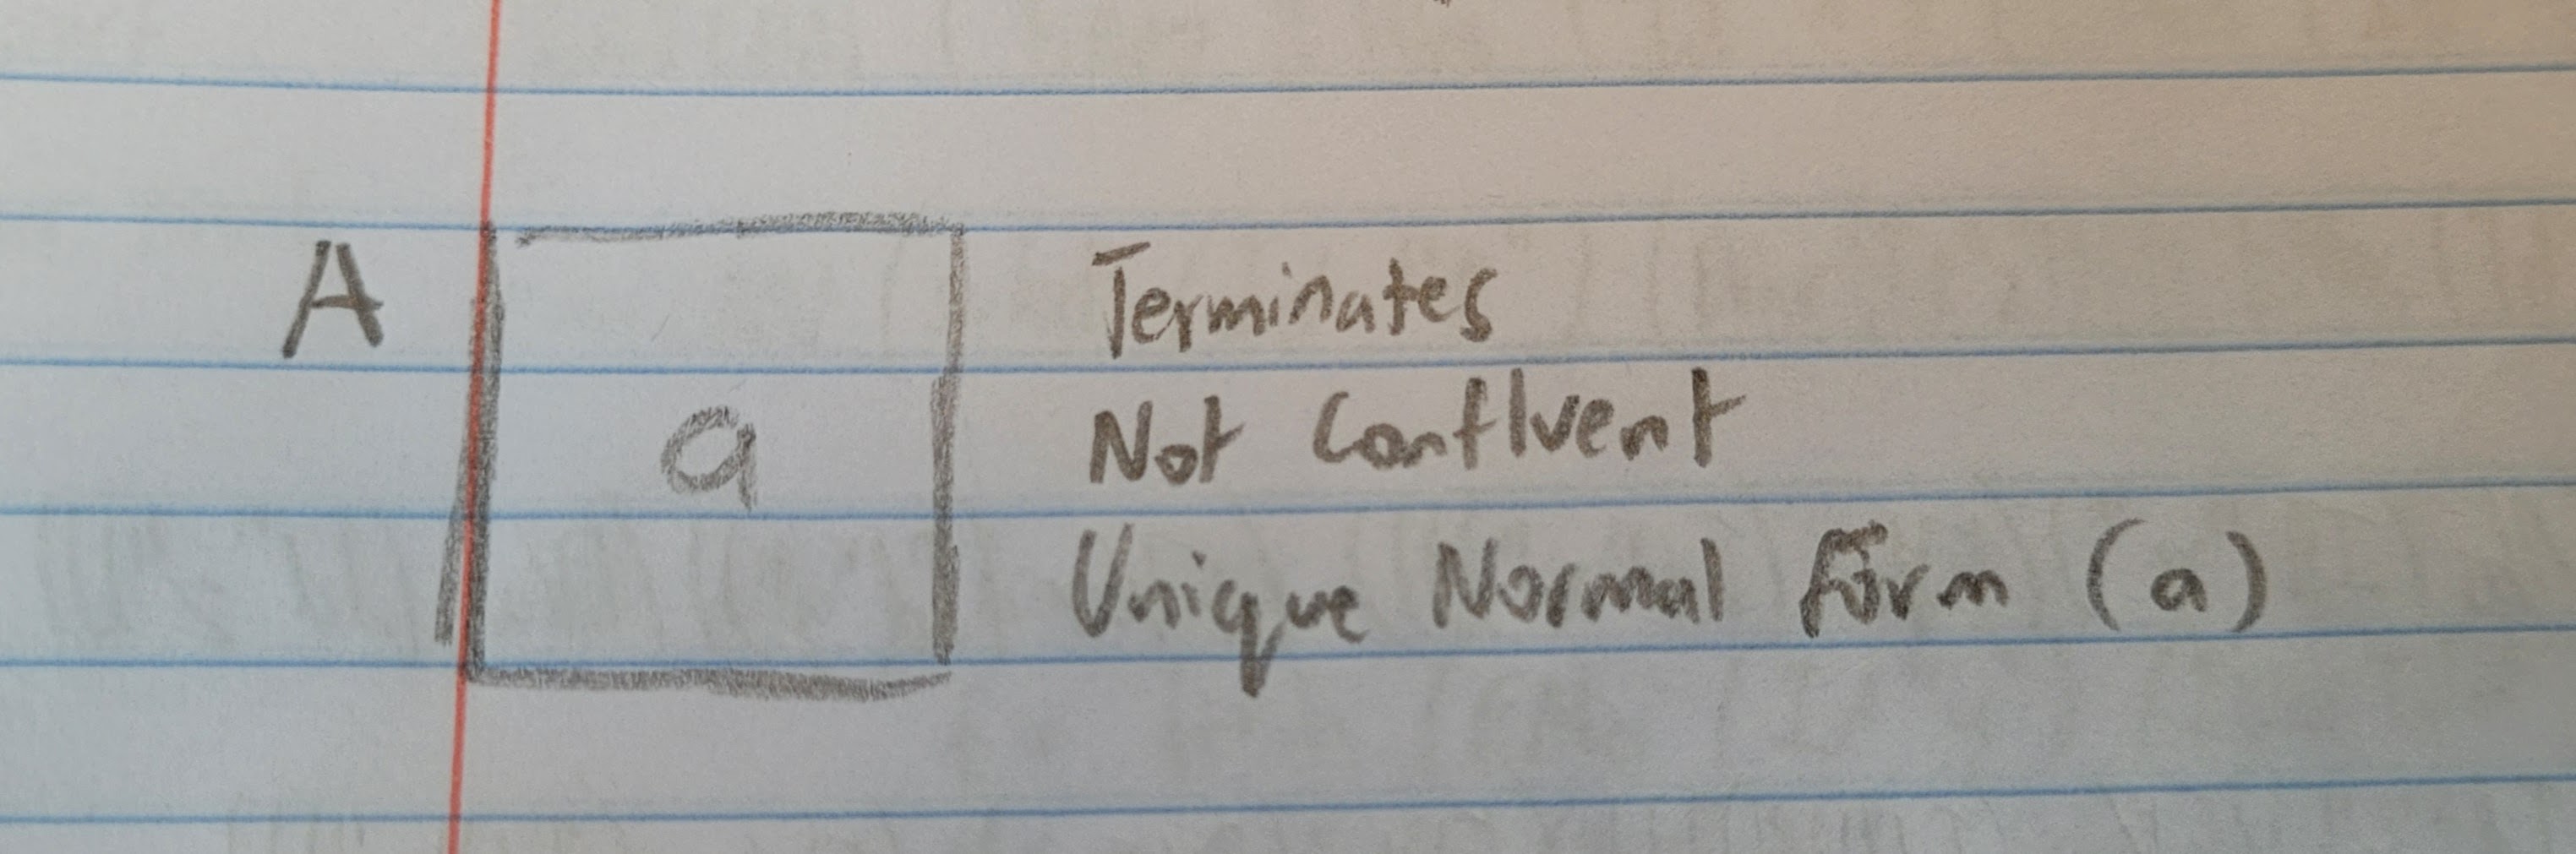 A
a
Terminates
Not Confluent
Unique Normal Form (a)